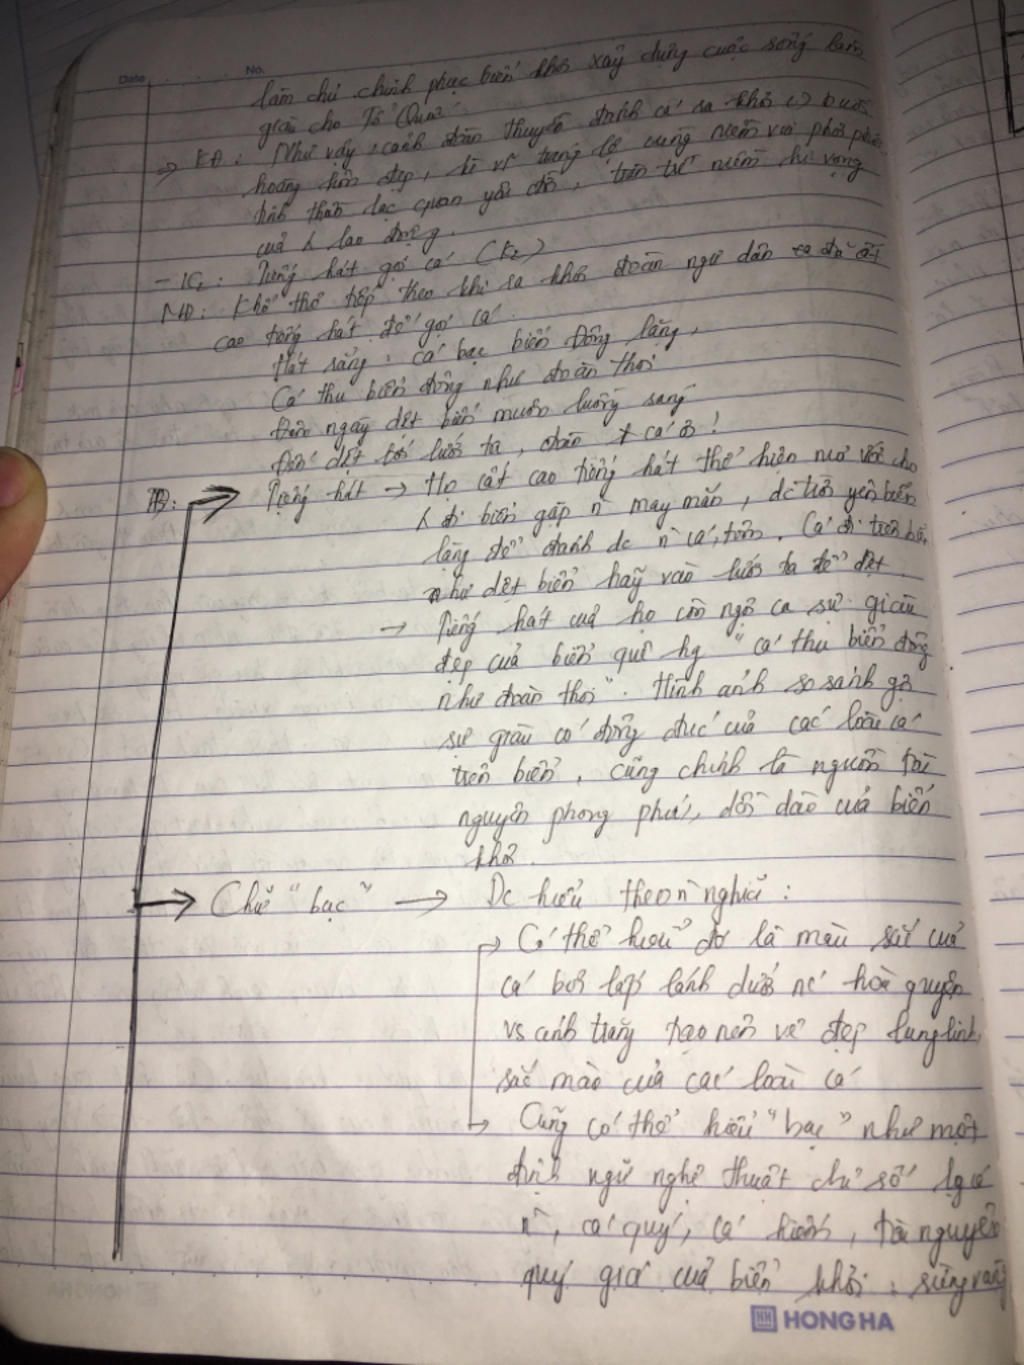 Date No.
làm chủ chinh phục biển khơi xây dựng cuộc sống làm
giàu cho Tổ Quốc
=> KĐ: Như vậy, cảnh đoàn thuyền đánh cá ra khơi buổi
hoàng hôn đẹp, kì vĩ tráng lệ cùng niềm vui phơi phới
tinh thần lạc quan yêu đời, tràn trề niềm hi vọng
của lao động.
- K2: Tiếng hát gọi cá (K2)
NĐ: Khổ thơ tiếp theo khi ra khơi đoàn ngư dân đã cất
cao tiếng hát để gọi cá.
Hát rằng: cá bạc biển Đông lặng,
Cá thu biển đông như đoàn thoi
Đêm ngày dệt biển muôn luồng sáng
Đến dệt lưới ta, đoàn cá ơi!
Tiếng hát → Họ cất cao tiếng hát thể hiện mơ ước cho
đi biển gặp n may mắn, dc trời yên biển
lặng để đánh dc n cá, tôm. Cá đi trên biển
như dệt biển hãy vào lưới ta để dệt.
→ Tiếng hát của họ còn ngợi ca sự giàu
đẹp của biển quê hg "cá thu biển đông
như đoàn thoi". Hình ảnh so sánh gợi
sự giàu có đông đúc của các loài cá
trên biển, cũng chính là nguồn tài
nguyên phong phú, dồi dào của biển
khơi.
→ Chữ "bạc" → Dc hiểu theo n nghĩa:
→ Có thể hiểu đó là màu sắc của
cá bơi lấp lánh dưới nc hoà quyện
vs ánh trăng tạo nên vẻ đẹp lung linh,
sắc màu của các loài cá
→ Cũng có thể hiểu "bạc" như một
định ngữ nghệ thuật chỉ số lg cá
n, cá quý, cá hiếm, tài nguyên
quý giá của biển khơi: rừng vàng
HONG HA